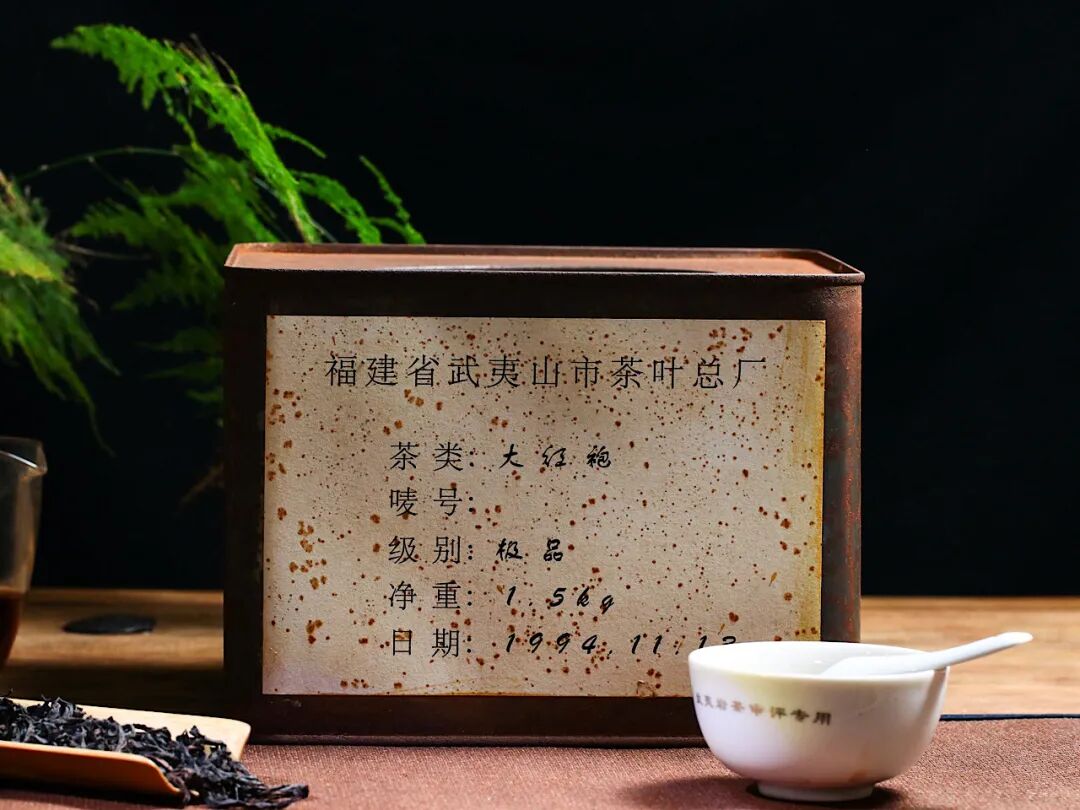 福建省武夷山市茶叶总厂
茶类:大红袍
唛号:
级别:极品
净重:1.5kg
日期:1994.11.13
武夷岩茶审评专用